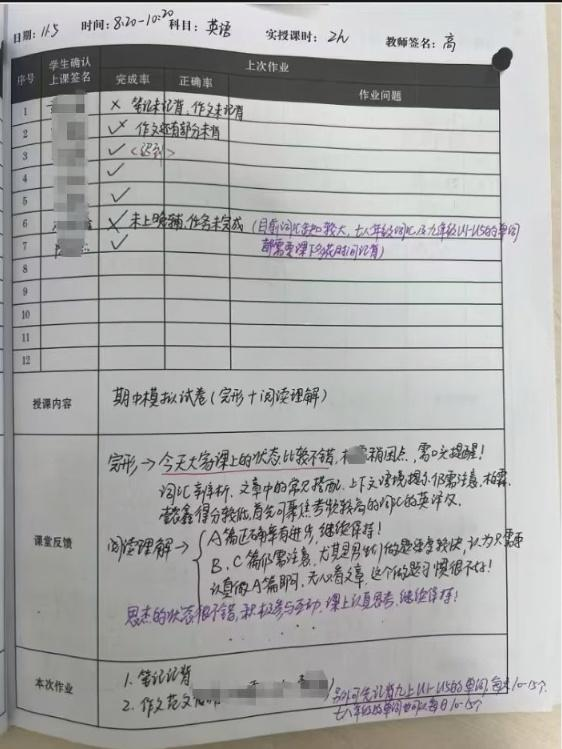 日期: 11.5 时间: 8:20-10:20 科目: 英语 实授课时: 2h 教师签名: 高
序号 学生确认上课签名 上次作业
完成率 正确率 作业问题
1 × 笔记未记背,作文未记背
2 作文还有部分未背
3 ✓ <迟到>
4 ✓
5 ✓
6 × 未上晚辅,任务未完成 (目前词汇缺口较大,七八年级词汇及九年级U1-U5的单词
都需要课下多花时间记背)
7 ✓
8
9
10
11
12
授课内容 期中模拟试卷(完形+阅读理解)
课堂反馈
完形→今天大家课上的状态比较不错, 稍困点,需多提醒!
词汇辨析、文章中的常见搭配、上下文语境提示仍需注意,
得分较低,首先可聚焦考频较高的词汇的英译汉.
阅读理解→ A篇正确率有进步,继续保持!
B、C篇仍需注意,尤其是男生们做题速度较快,认为只需要
认真做A篇即可,无心看文章,这个做题习惯很不好!
思杰的状态很不错,积极参与互动,课上认真思考,继续保持!
本次作业
1. 笔记记背
2. 作文范文
另外可先记背九上U1-U5的单词,每天10-15个.
七八年级的单词也可以每日10-15个